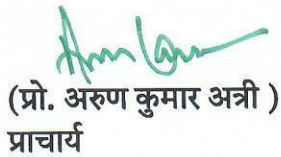 (प्रो. अरुण कुमार अत्री )
प्राचार्य